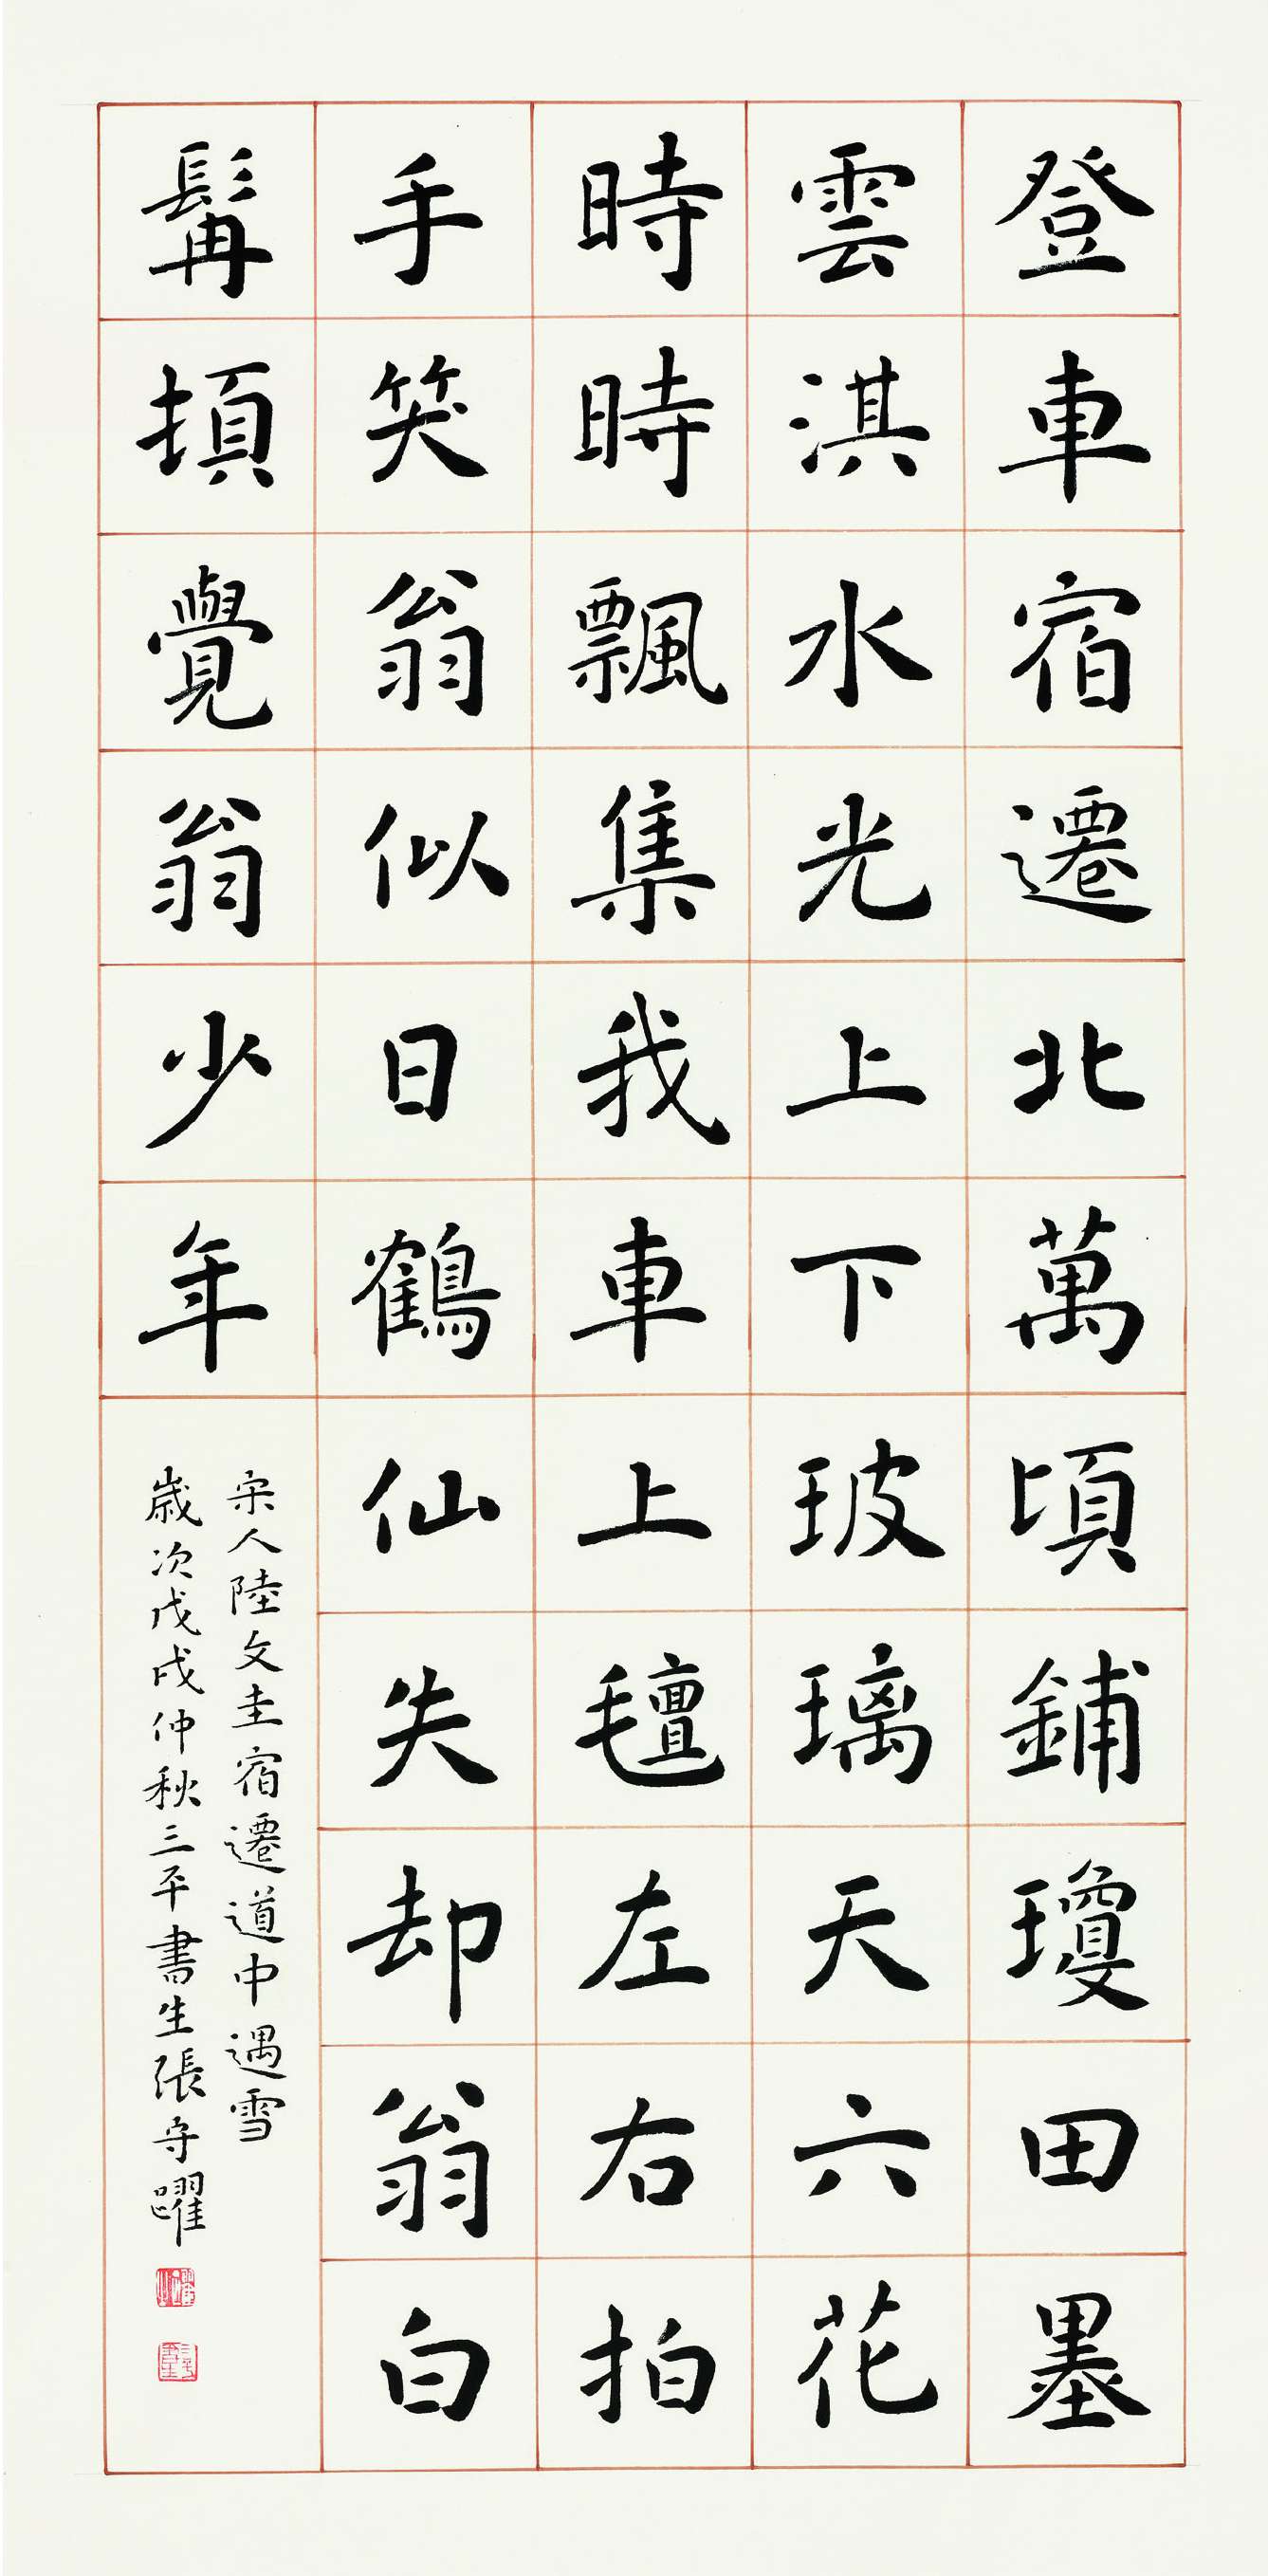 登車宿遷北萬頃鋪瓊田墨
雲淇水光上下玻璃天六花
時時飄集我車上氊左右拍
手笑翁似日鶴仙失却翁白
髯頓覺翁少年
宋人陸文圭宿遷道中遇雪
歲次戊戌仲秋三平書生張守躍